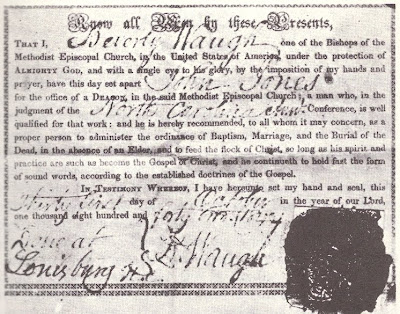 Know all Men by these Presents,
THAT I, Beverly Waugh one of the Bishops of the
Methodist Episcopal Church, in the United States of America, under the protection of
ALMIGHTY GOD, and with a single eye to his glory, by the imposition of my hands and
prayer, have this day set apart John Jones
for the office of a DEACON, in the said Methodist Episcopal Church; a man who, in the
judgment of the North Carolina Conference, is well
qualified for that work: and he is hereby recommended, to all whom it may concern, as a
proper person to administer the ordinance of Baptism, Marriage, and the Burial of the
Dead, in the absence of an Elder, and to feed the flock of Christ, so long as his spirit and
practice are such as become the Gospel of Christ, and he continueth to hold fast the form
of sound words, according to the established doctrines of the Gospel.
In TESTIMONY WHEREOF, I have hereunto set my hand and seal, this
day of in the year of our Lord,
one thousand eight hundred and
Done at
Louisburg N.C. B. Waugh